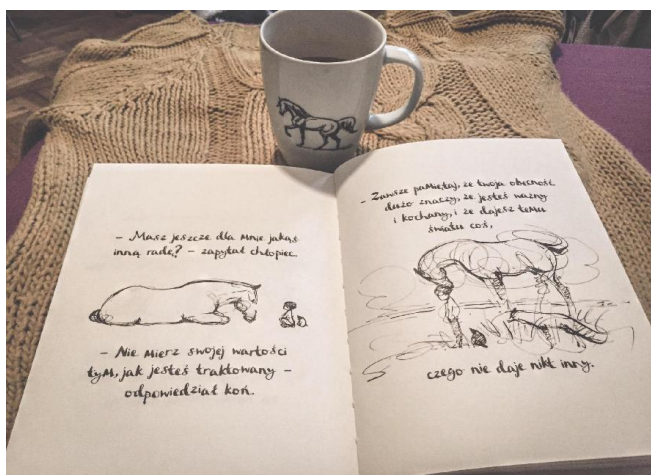 – Masz jeszcze dla mnie jakąś
inną radę? – zapytał chłopiec.
– Nie mierz swojej wartości
tym, jak jesteś traktowany –
odpowiedział koń.
– Zawsze pamiętaj, że twoja obecność
dużo znaczy, że jesteś ważny
i kochany, i że dajesz temu
światu coś,
czego nie daje nikt inny.